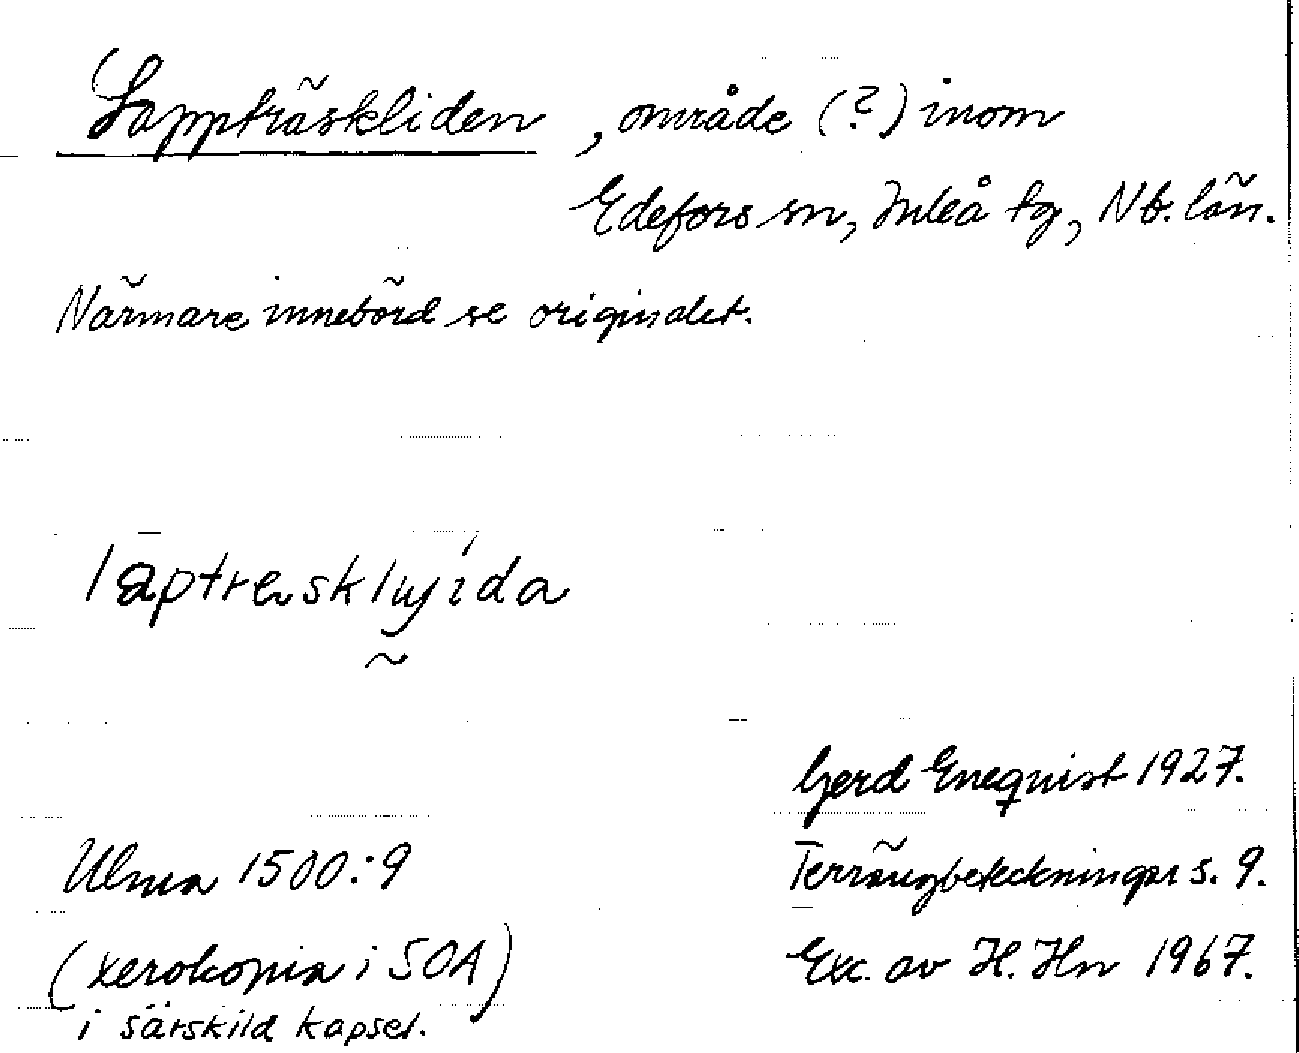 Lappträskliden, område (?) inom
Edefors sn, Luleå tg, Nb. län.
Närmare innebörd se originalet.
Gerd Enequist 1927.
Ulma 1500:9
Terrängbeteckningar s. 9.
(xerokopia i SOA)
Exc. av H. Hn 1967.
i särskild kapsel.